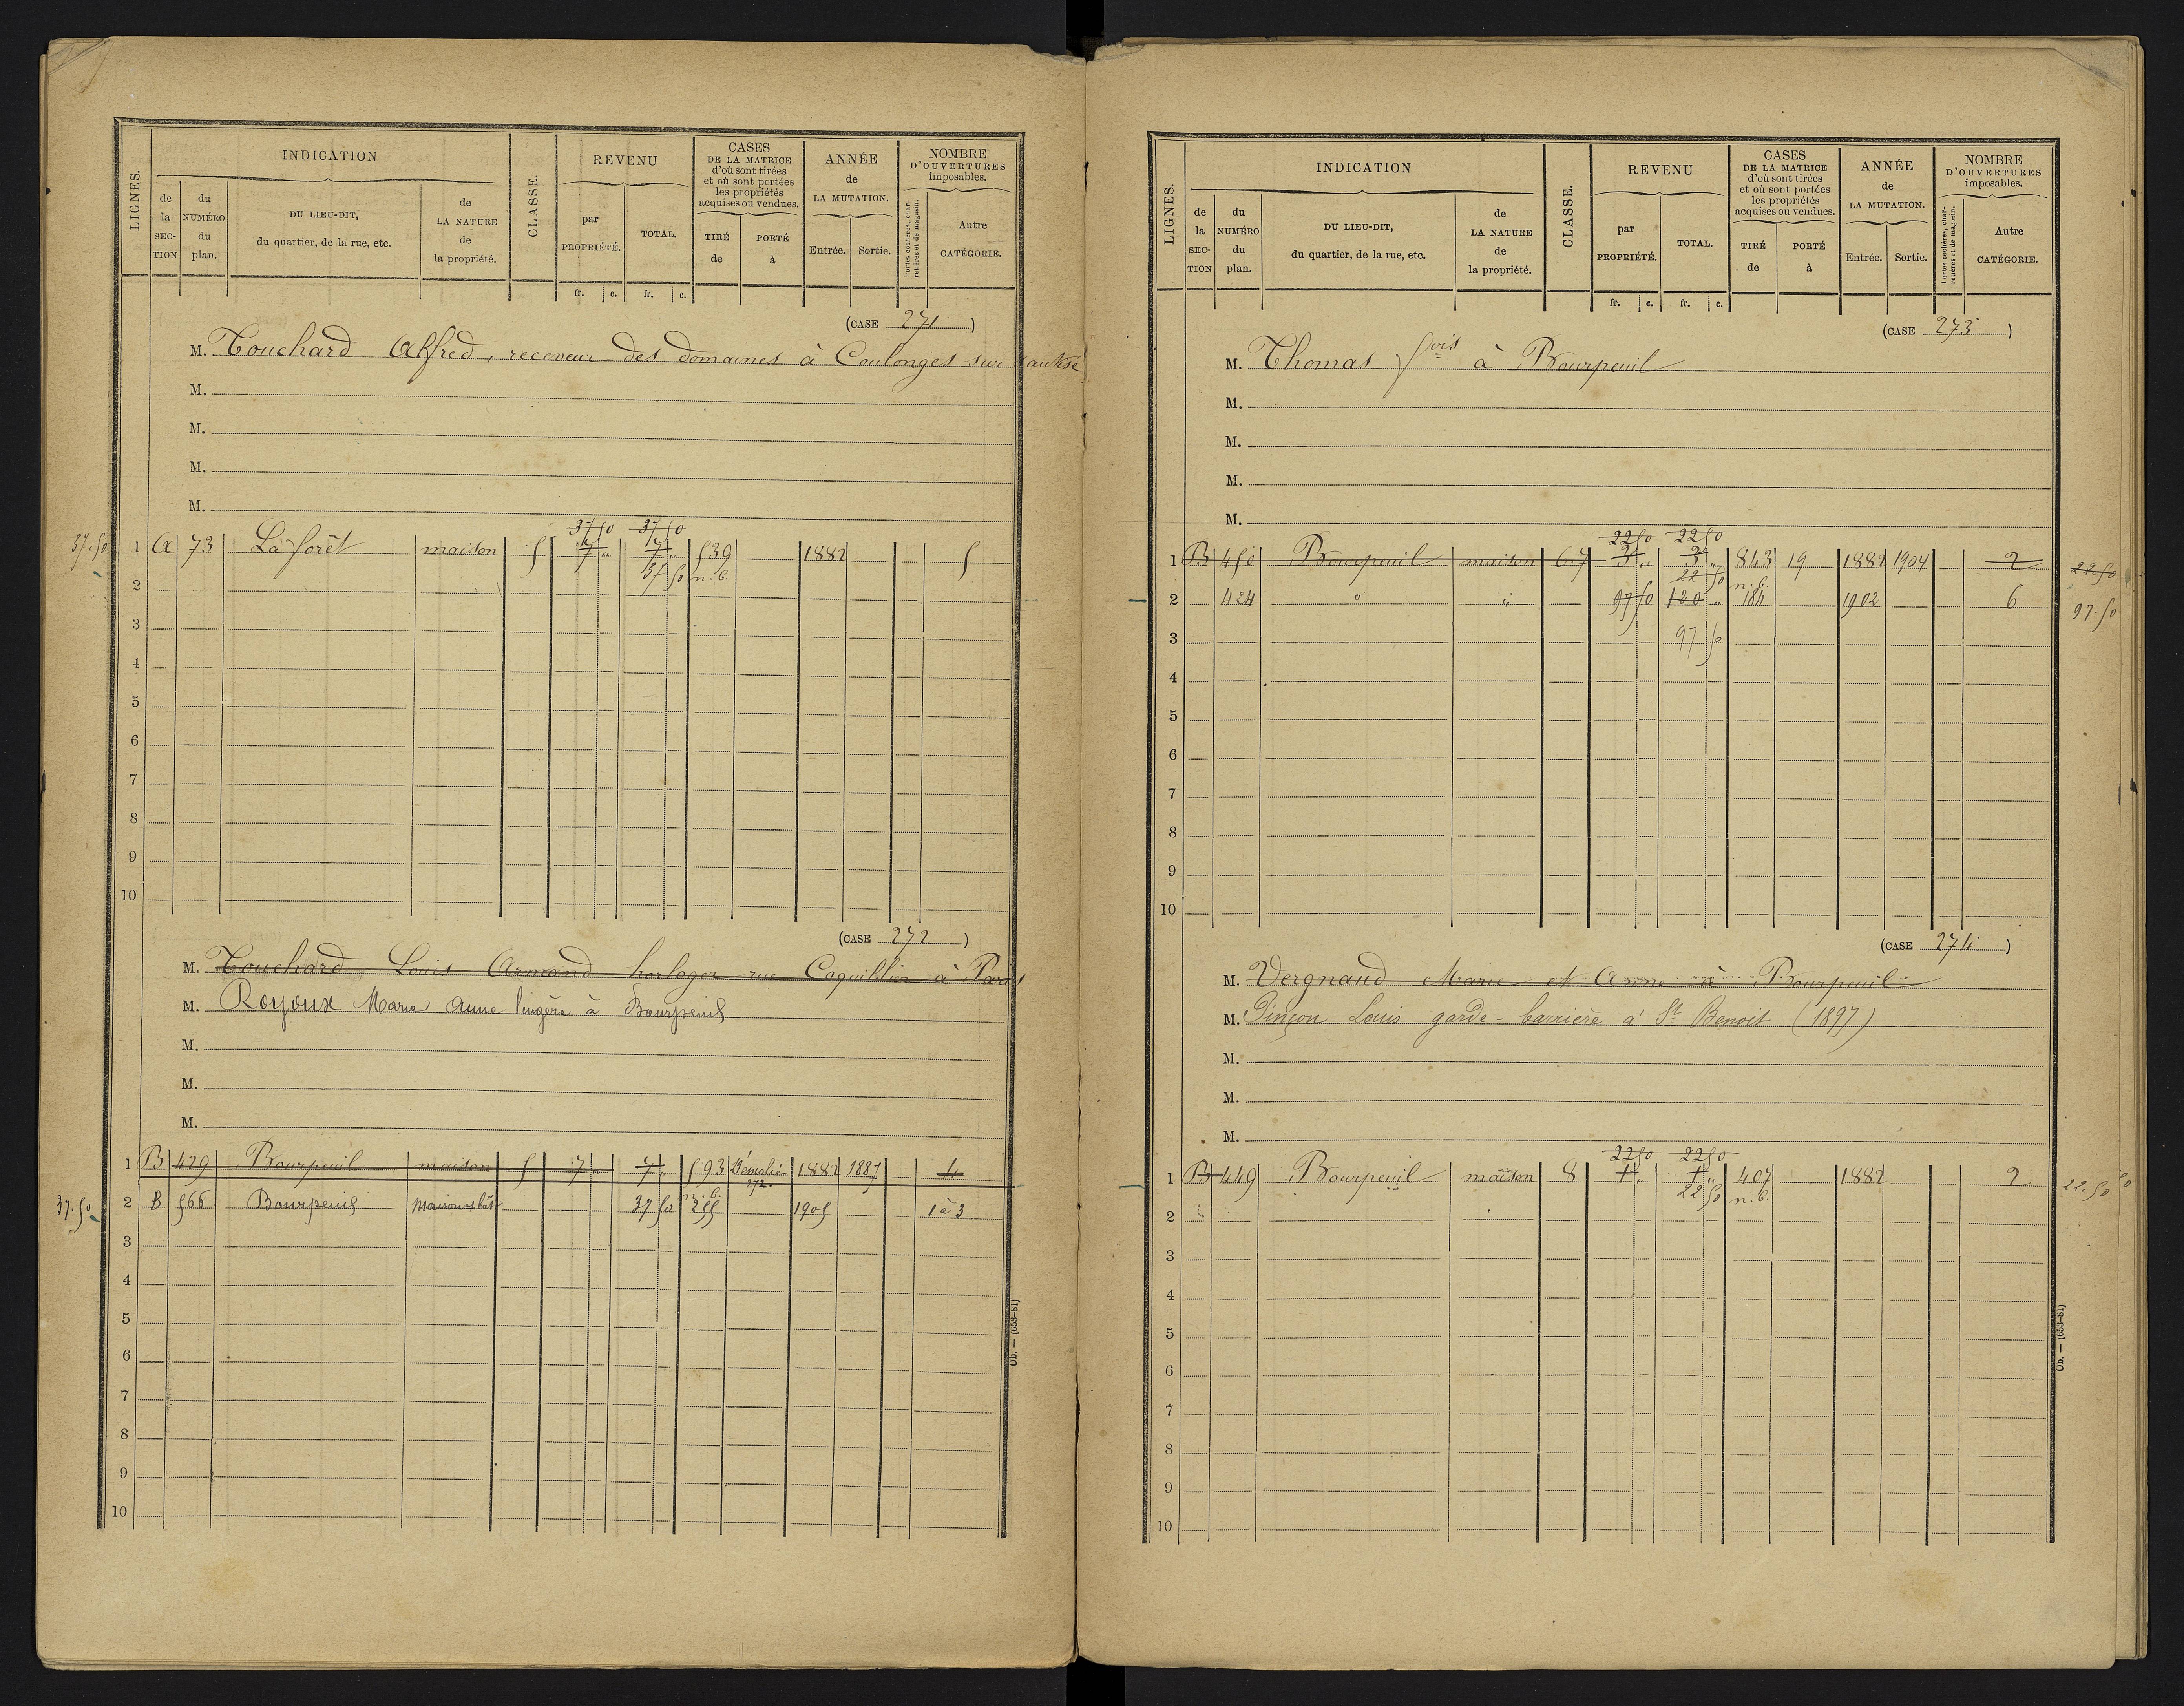 LIGNES.
INDICATION
de la SECTION
du NUMÉRO du plan.
DU LIEU-DIT, du quartier, de la rue, etc.
de LA NATURE de la propriété.
CLASSE.
REVENU
par PROPRIÉTÉ.
TOTAL.
fr. c. fr. c.
CASES DE LA MATRICE d'où sont tirées et où sont portées les propriétés acquises ou vendues.
TIRÉ de
PORTÉ à
ANNÉE de LA MUTATION.
Entrée. Sortie.
NOMBRE D'OUVERTURES imposables.
Portes cochères, charretières et de magasin.
Autre CATÉGORIE.
(CASE 271)
M. Touchard Alfred, receveur des domaines à Coulonges sur
M.
M.
M.
M.
37 50 37 50
37.50 1 A 73 La forêt maison 5 7 " 7 " 539 1882 5
37 50 n.b.
2
3
4
5
6
7
8
9
10
(CASE 272)
M. Touchard Louis Armand horloger rue Coquillier à Paris
M. Royoux Marie Anne lingère à Bourpeuil
M.
M.
M.
1 B 429 Bourpeuil maison 5 7 " 7 " 593 Démolie 1882 1887 4
272.
n.b.
37.50 2 B 566 Bourpeuil Maison et bât 37 50 255 1905 1 à 3
3
4
5
6
7
8
9
10
Ob. — (653-81)
LIGNES.
INDICATION
de la SECTION
du NUMÉRO du plan.
DU LIEU-DIT, du quartier, de la rue, etc.
de LA NATURE de la propriété.
CLASSE.
REVENU
par PROPRIÉTÉ.
TOTAL.
fr. c. fr. c.
CASES DE LA MATRICE d'où sont tirées et où sont portées les propriétés acquises ou vendues.
TIRÉ de
PORTÉ à
ANNÉE de LA MUTATION.
Entrée. Sortie.
NOMBRE D'OUVERTURES imposables.
Portes cochères, charretières et de magasin.
Autre CATÉGORIE.
(CASE 273)
M. Thomas fois à Bourpeuil
M.
M.
M.
M.
22 50 22 50
1 B 450 Bourpeuil maison 6.7 3 " 3 " 843 19 1882 1904 2 22.50
22 50 n.b.
2 424 " " 97 50 120 " 184 1902 6 97.50
3 97 50
4
5
6
7
8
9
10
(CASE 274)
M. Vergnaud Marie et Anne à Bourpeuil
M. Pinçon Louis garde-barrière à St Benoit (1897)
M.
M.
M.
22 50 22 50
1 B 449 Bourpeuil maison 8 1 " 1 " 407 1882 2 22.50
22 50 n.b.
2
3
4
5
6
7
8
9
10
Ob. — (653-81)